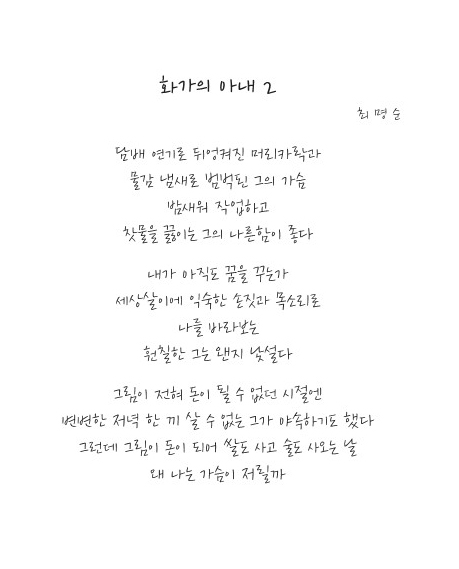 화가의 아내 2
최명순
담배 연기로 뒤엉켜진 머리카락과
물감 냄새로 범벅된 그의 가슴
밤새워 작업하고
찻물을 끓이는 그의 나른함이 좋다
내가 아직도 꿈을 꾸는가
세상살이에 익숙한 손짓과 목소리로
나를 바라보는
훤칠한 그는 왠지 낯설다
그림이 전혀 돈이 될 수 없던 시절엔
변변한 저녁 한 끼 살 수 없는 그가 야속하기도 했다
그런데 그림이 돈이 되어 쌀도 사고 술도 사오는 날
왜 나는 가슴이 저릴까